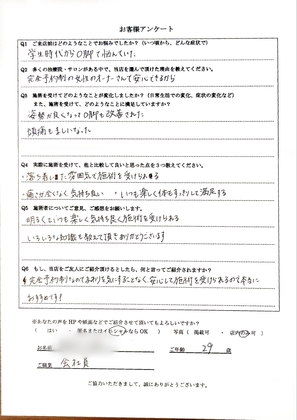 お客様アンケート
Q1 ご来店前はどのようなことでお悩みでしたか？（いつ頃から、どんな症状で）
学生時代からO脚で悩んでいた
Q2 多くの治療院・サロンがある中で、当店を選んで頂けた理由を教えてください。
完全予約制の女性のオーナーさんで安心できるから
Q3 施術を受けてどのようなことが変化しましたか？（日常生活での変化、症状の変化など）
また、施術を受けて、どのようなことに満足されましたか？
姿勢が良くなってO脚も改善された
頭痛もましになった
Q4 実際に施術を受けて、他と比較して良いと思った点を3つ教えてください。
・落ち着いた雰囲気で施術を受けられる
・痛さが全くなく気持ち良い ・いつも楽しく体もすっりして満足する
Q5 施術者についてご意見、ご感想をお願いします。
明るくていつも楽しく気持ち良く施術を受けられる
いろいろな知識も教えて頂きありがとうございます
Q6 もし、当店をご友人にご紹介頂けるとしたら、何と言ってご紹介されますか？
完全予約制なのでまわりを気にすることなく安心して施術を受けられるので本当に
おすすめです!
※あなたの声をHPや紙面などでご紹介させて頂いてもよろしいですか？
（ はい ・ 匿名またはイニシャルならOK ） 写真（ 掲載可 ・ 店内のみ可 ）
お名前
ご年齢 29 歳
ご職業 会社員
ご協力いただきまして、誠にありがとうございました。